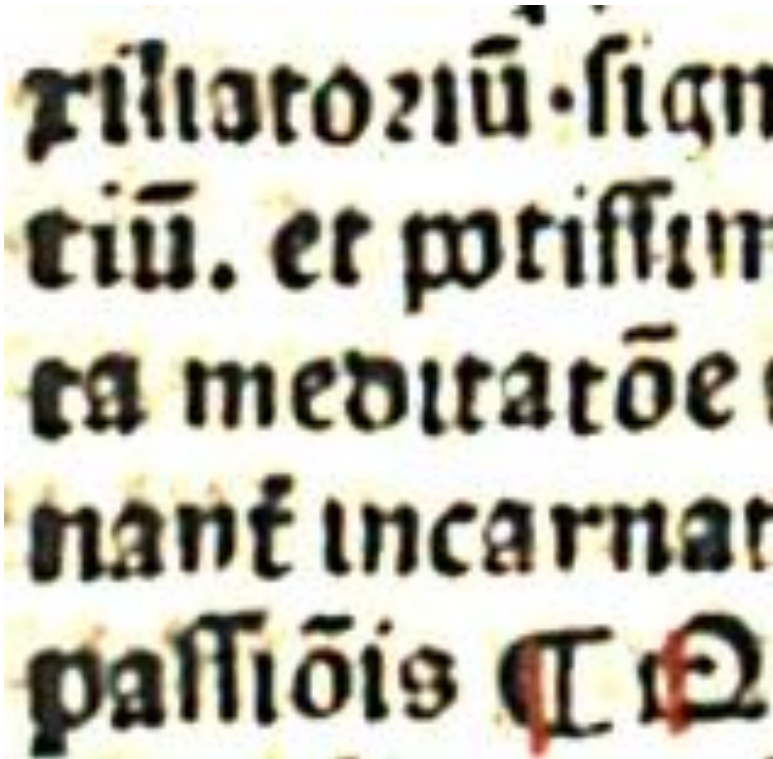 xiliatoriū·ſign
tiū. et potiſſim
ta meditatōe
nant̄ incarnat
paſſiōis ¶ M